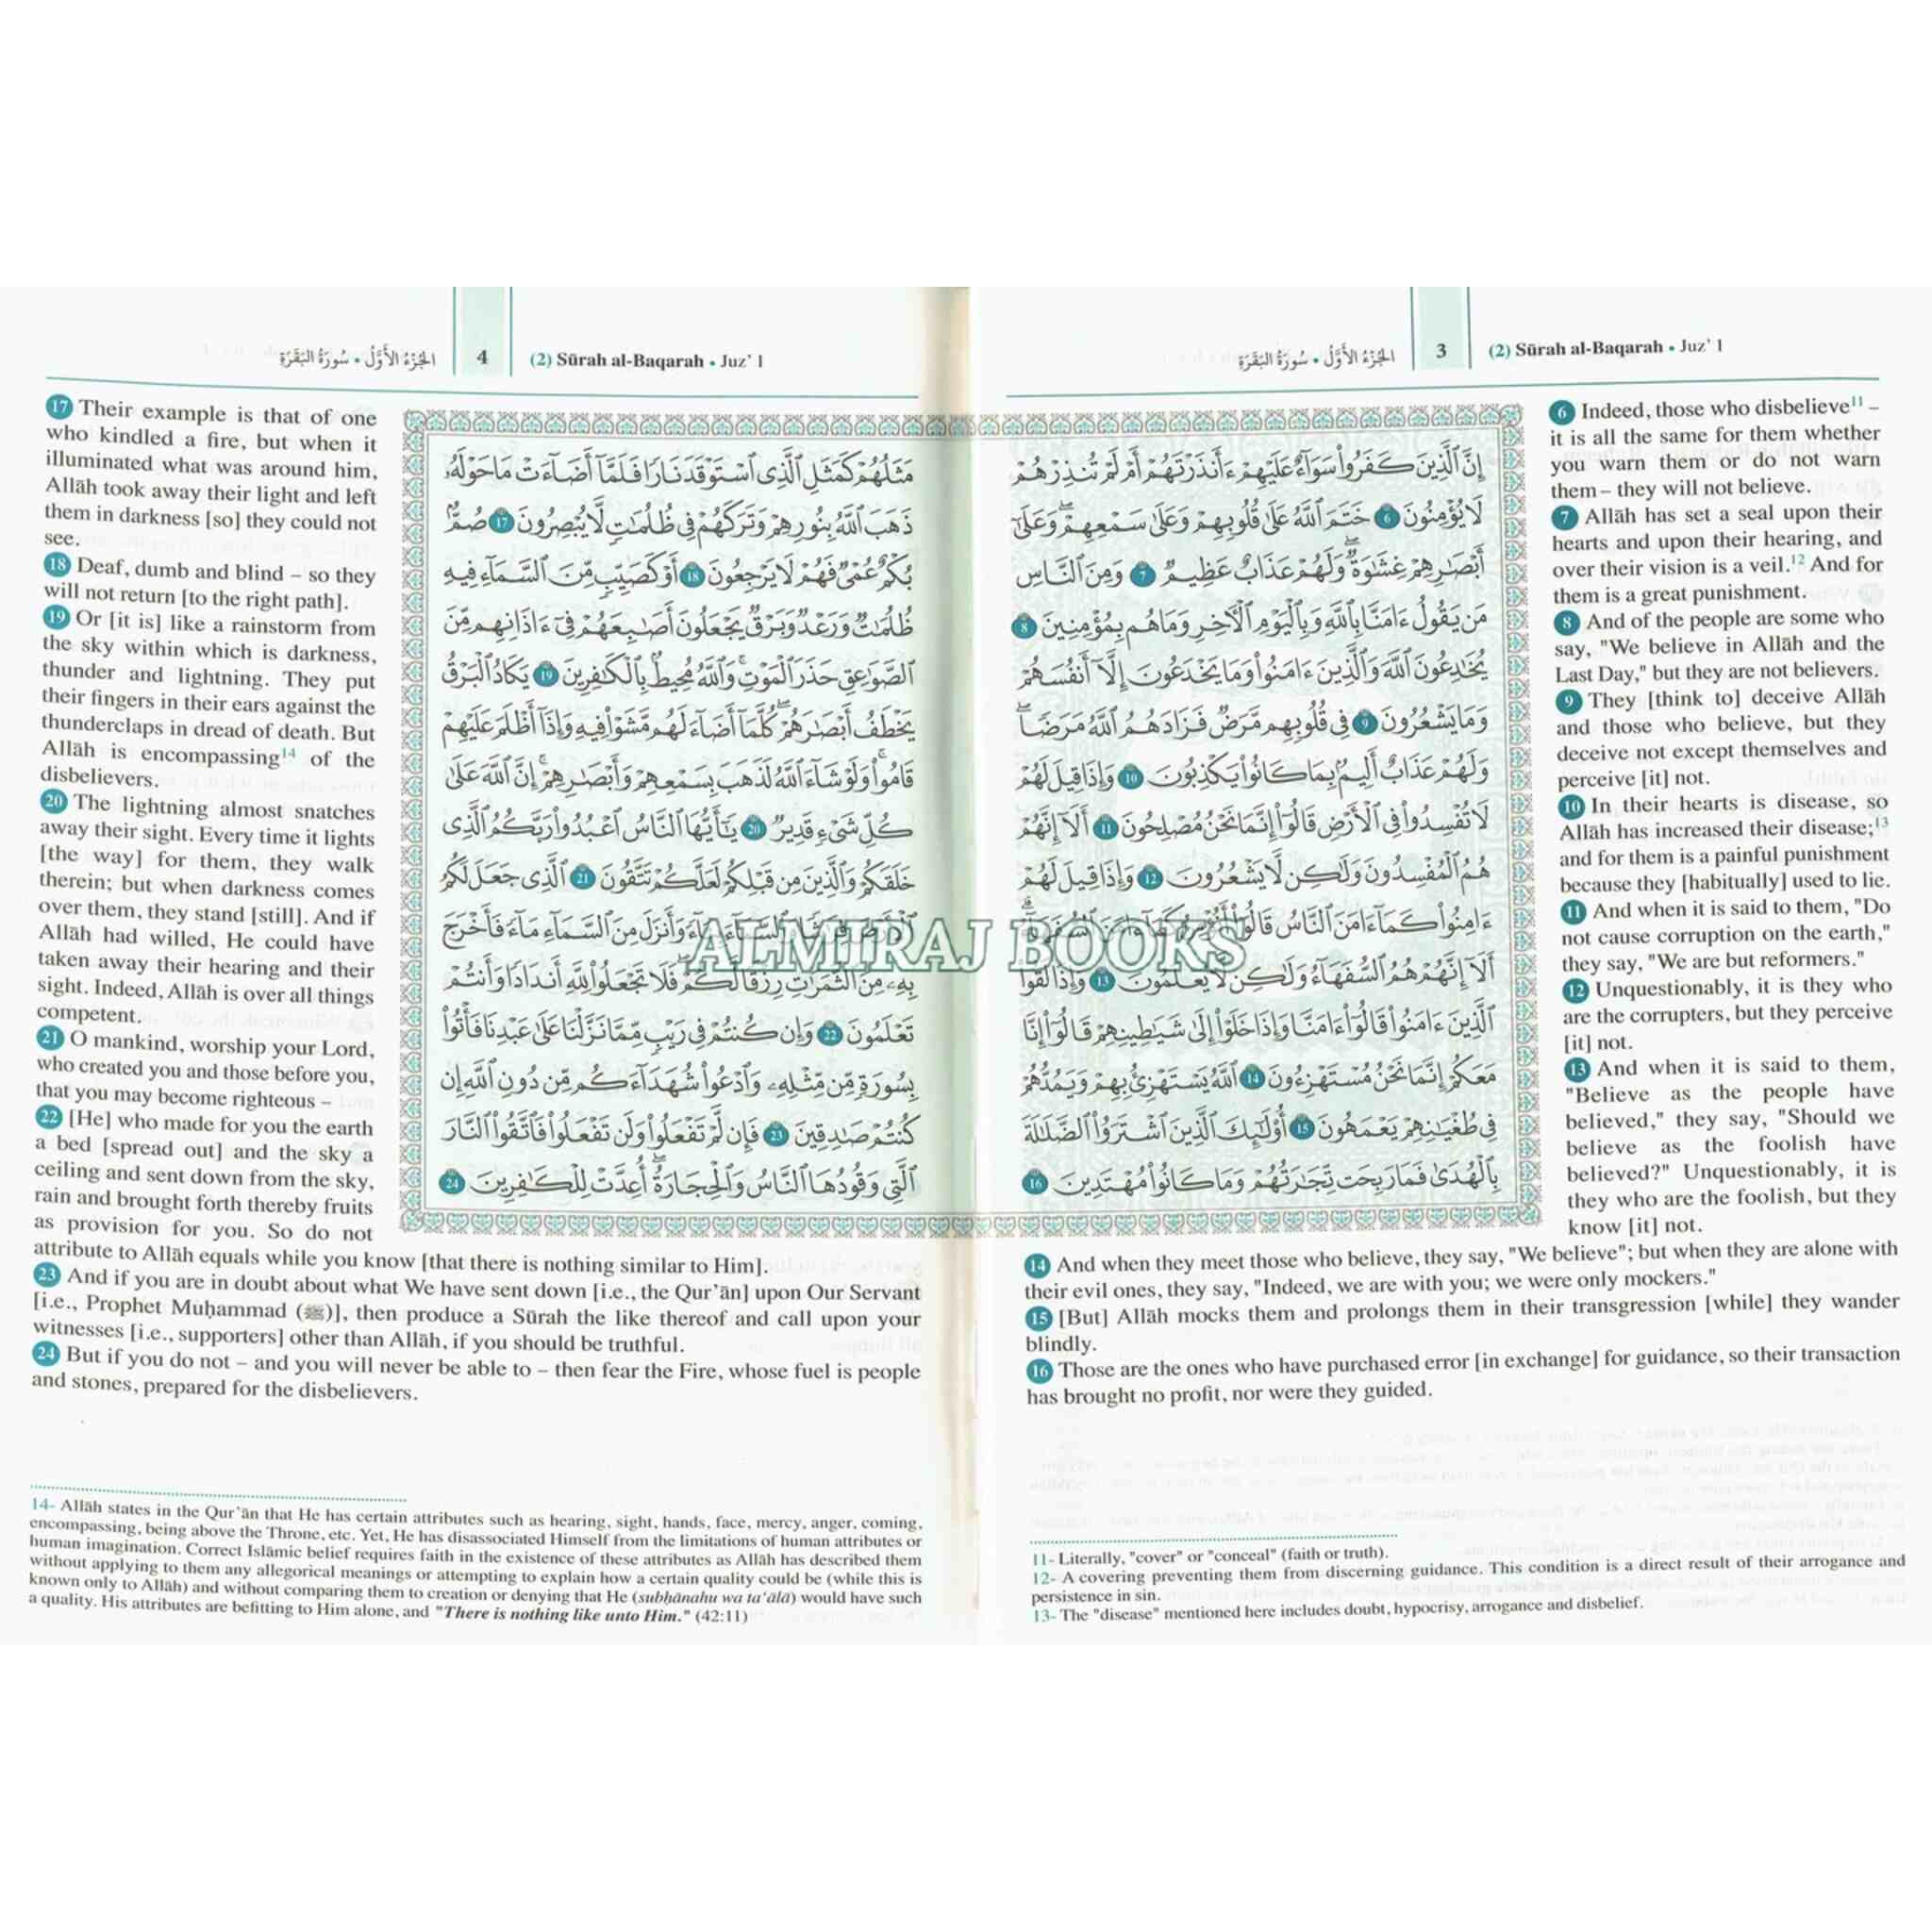 (2) Sūrah al-Baqarah • Juz' 1
3
الجزء الأوّل • سورة البقرة
إِنَّ ٱلَّذِينَ كَفَرُوا۟ سَوَآءٌ عَلَيْهِمْ ءَأَنذَرْتَهُمْ أَمْ لَمْ تُنذِرْهُمْ
لَا يُؤْمِنُونَ 6 خَتَمَ ٱللَّهُ عَلَىٰ قُلُوبِهِمْ وَعَلَىٰ سَمْعِهِمْ ۖ وَعَلَىٰٓ
أَبْصَـٰرِهِمْ غِشَـٰوَةٌ ۖ وَلَهُمْ عَذَابٌ عَظِيمٌ 7 وَمِنَ ٱلنَّاسِ
مَن يَقُولُ ءَامَنَّا بِٱللَّهِ وَبِٱلْيَوْمِ ٱلْـَٔاخِرِ وَمَا هُم بِمُؤْمِنِينَ 8
يُخَـٰدِعُونَ ٱللَّهَ وَٱلَّذِينَ ءَامَنُوا۟ وَمَا يَخْدَعُونَ إِلَّآ أَنفُسَهُمْ
وَمَا يَشْعُرُونَ 9 فِى قُلُوبِهِم مَّرَضٌ فَزَادَهُمُ ٱللَّهُ مَرَضًا ۖ
وَلَهُمْ عَذَابٌ أَلِيمٌۢ بِمَا كَانُوا۟ يَكْذِبُونَ 10 وَإِذَا قِيلَ لَهُمْ
لَا تُفْسِدُوا۟ فِى ٱلْأَرْضِ قَالُوٓا۟ إِنَّمَا نَحْنُ مُصْلِحُونَ 11 أَلَآ إِنَّهُمْ
هُمُ ٱلْمُفْسِدُونَ وَلَـٰكِن لَّا يَشْعُرُونَ 12 وَإِذَا قِيلَ لَهُمْ
ءَامِنُوا۟ كَمَآ ءَامَنَ ٱلنَّاسُ قَالُوٓا۟ أَنُؤْمِنُ كَمَآ ءَامَنَ ٱلسُّفَهَآءُ ۗ
أَلَآ إِنَّهُمْ هُمُ ٱلسُّفَهَآءُ وَلَـٰكِن لَّا يَعْلَمُونَ 13 وَإِذَا لَقُوا۟
ٱلَّذِينَ ءَامَنُوا۟ قَالُوٓا۟ ءَامَنَّا وَإِذَا خَلَوْا۟ إِلَىٰ شَيَـٰطِينِهِمْ قَالُوٓا۟ إِنَّا
مَعَكُمْ إِنَّمَا نَحْنُ مُسْتَهْزِءُونَ 14 ٱللَّهُ يَسْتَهْزِئُ بِهِمْ وَيَمُدُّهُمْ
فِى طُغْيَـٰنِهِمْ يَعْمَهُونَ 15 أُو۟لَـٰٓئِكَ ٱلَّذِينَ ٱشْتَرَوُا۟ ٱلضَّلَـٰلَةَ
بِٱلْهُدَىٰ فَمَا رَبِحَت تِّجَـٰرَتُهُمْ وَمَا كَانُوا۟ مُهْتَدِينَ 16
6 Indeed, those who disbelieve11 –
it is all the same for them whether
you warn them or do not warn
them – they will not believe.
7 Allāh has set a seal upon their
hearts and upon their hearing, and
over their vision is a veil.12 And for
them is a great punishment.
8 And of the people are some who
say, "We believe in Allāh and the
Last Day," but they are not believers.
9 They [think to] deceive Allāh
and those who believe, but they
deceive not except themselves and
perceive [it] not.
10 In their hearts is disease, so
Allāh has increased their disease;13
and for them is a painful punishment
because they [habitually] used to lie.
11 And when it is said to them, "Do
not cause corruption on the earth,"
they say, "We are but reformers."
12 Unquestionably, it is they who
are the corrupters, but they perceive
[it] not.
13 And when it is said to them,
"Believe as the people have
believed," they say, "Should we
believe as the foolish have
believed?" Unquestionably, it is
they who are the foolish, but they
know [it] not.
14 And when they meet those who believe, they say, "We believe"; but when they are alone with
their evil ones, they say, "Indeed, we are with you; we were only mockers."
15 [But] Allāh mocks them and prolongs them in their transgression [while] they wander
blindly.
16 Those are the ones who have purchased error [in exchange] for guidance, so their transaction
has brought no profit, nor were they guided.
11- Literally, "cover" or "conceal" (faith or truth).
12- A covering preventing them from discerning guidance. This condition is a direct result of their arrogance and
persistence in sin.
13- The "disease" mentioned here includes doubt, hypocrisy, arrogance and disbelief.
(2) Sūrah al-Baqarah • Juz' 1
4
الجزء الأوّل • سورة البقرة
مَثَلُهُمْ كَمَثَلِ ٱلَّذِى ٱسْتَوْقَدَ نَارًا فَلَمَّآ أَضَآءَتْ مَا حَوْلَهُۥ
ذَهَبَ ٱللَّهُ بِنُورِهِمْ وَتَرَكَهُمْ فِى ظُلُمَـٰتٍ لَّا يُبْصِرُونَ 17 صُمٌّۢ
بُكْمٌ عُمْىٌ فَهُمْ لَا يَرْجِعُونَ 18 أَوْ كَصَيِّبٍ مِّنَ ٱلسَّمَآءِ فِيهِ
ظُلُمَـٰتٌ وَرَعْدٌ وَبَرْقٌ يَجْعَلُونَ أَصَـٰبِعَهُمْ فِىٓ ءَاذَانِهِم مِّنَ
ٱلصَّوَٰعِقِ حَذَرَ ٱلْمَوْتِ ۚ وَٱللَّهُ مُحِيطٌۢ بِٱلْكَـٰفِرِينَ 19 يَكَادُ ٱلْبَرْقُ
يَخْطَفُ أَبْصَـٰرَهُمْ ۖ كُلَّمَآ أَضَآءَ لَهُم مَّشَوْا۟ فِيهِ وَإِذَآ أَظْلَمَ عَلَيْهِمْ
قَامُوا۟ ۚ وَلَوْ شَآءَ ٱللَّهُ لَذَهَبَ بِسَمْعِهِمْ وَأَبْصَـٰرِهِمْ ۚ إِنَّ ٱللَّهَ عَلَىٰ
كُلِّ شَىْءٍ قَدِيرٌ 20 يَـٰٓأَيُّهَا ٱلنَّاسُ ٱعْبُدُوا۟ رَبَّكُمُ ٱلَّذِى
خَلَقَكُمْ وَٱلَّذِينَ مِن قَبْلِكُمْ لَعَلَّكُمْ تَتَّقُونَ 21 ٱلَّذِى جَعَلَ لَكُمُ
ٱلْأَرْضَ فِرَٰشًا وَٱلسَّمَآءَ بِنَآءً وَأَنزَلَ مِنَ ٱلسَّمَآءِ مَآءً فَأَخْرَجَ
بِهِۦ مِنَ ٱلثَّمَرَٰتِ رِزْقًا لَّكُمْ ۖ فَلَا تَجْعَلُوا۟ لِلَّهِ أَندَادًا وَأَنتُمْ
تَعْلَمُونَ 22 وَإِن كُنتُمْ فِى رَيْبٍ مِّمَّا نَزَّلْنَا عَلَىٰ عَبْدِنَا فَأْتُوا۟
بِسُورَةٍ مِّن مِّثْلِهِۦ وَٱدْعُوا۟ شُهَدَآءَكُم مِّن دُونِ ٱللَّهِ إِن
كُنتُمْ صَـٰدِقِينَ 23 فَإِن لَّمْ تَفْعَلُوا۟ وَلَن تَفْعَلُوا۟ فَٱتَّقُوا۟ ٱلنَّارَ
ٱلَّتِى وَقُودُهَا ٱلنَّاسُ وَٱلْحِجَارَةُ ۖ أُعِدَّتْ لِلْكَـٰفِرِينَ 24
17 Their example is that of one
who kindled a fire, but when it
illuminated what was around him,
Allāh took away their light and left
them in darkness [so] they could not
see.
18 Deaf, dumb and blind – so they
will not return [to the right path].
19 Or [it is] like a rainstorm from
the sky within which is darkness,
thunder and lightning. They put
their fingers in their ears against the
thunderclaps in dread of death. But
Allāh is encompassing14 of the
disbelievers.
20 The lightning almost snatches
away their sight. Every time it lights
[the way] for them, they walk
therein; but when darkness comes
over them, they stand [still]. And if
Allāh had willed, He could have
taken away their hearing and their
sight. Indeed, Allāh is over all things
competent.
21 O mankind, worship your Lord,
who created you and those before you,
that you may become righteous –
22 [He] who made for you the earth
a bed [spread out] and the sky a
ceiling and sent down from the sky,
rain and brought forth thereby fruits
as provision for you. So do not
attribute to Allāh equals while you know [that there is nothing similar to Him].
23 And if you are in doubt about what We have sent down [i.e., the Qur'ān] upon Our Servant
[i.e., Prophet Muḥammad (ﷺ)], then produce a Sūrah the like thereof and call upon your
witnesses [i.e., supporters] other than Allāh, if you should be truthful.
24 But if you do not – and you will never be able to – then fear the Fire, whose fuel is people
and stones, prepared for the disbelievers.
14- Allāh states in the Qur'ān that He has certain attributes such as hearing, sight, hands, face, mercy, anger, coming,
encompassing, being above the Throne, etc. Yet, He has disassociated Himself from the limitations of human attributes or
human imagination. Correct Islāmic belief requires faith in the existence of these attributes as Allāh has described them
without applying to them any allegorical meanings or attempting to explain how a certain quality could be (while this is
known only to Allāh) and without comparing them to creation or denying that He (subḥānahu wa ta'ālā) would have such
a quality. His attributes are befitting to Him alone, and "There is nothing like unto Him." (42:11)
ALMIRAJ BOOKS